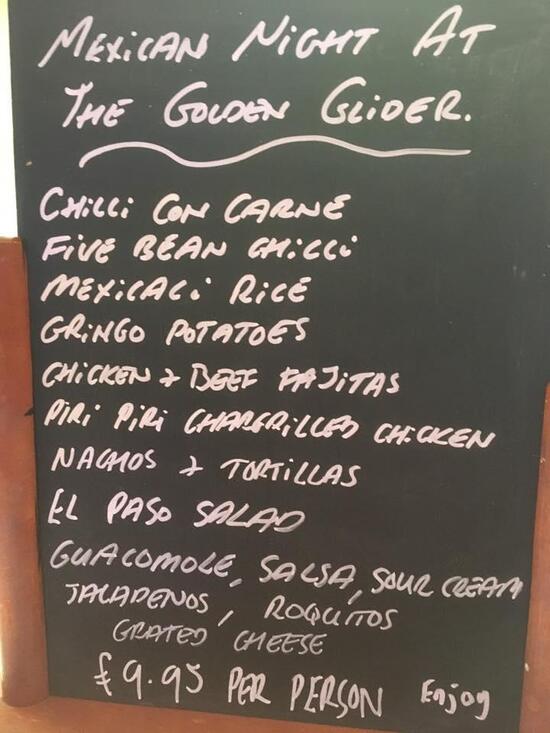 MEXICAN NIGHT AT
THE GOLDEN GLIDER.
CHILLI CON CARNE
FIVE BEAN CHILLI
MEXICALI RICE
GRINGO POTATOES
CHICKEN & BEEF FAJITAS
PIRI PIRI CHARGRILLED CHICKEN
NACHOS & TORTILLAS
EL PASO SALAD
GUACOMOLE, SALSA, SOUR CREAM
JALAPENOS, ROQUITOS
GRATED CHEESE
£9.95 PER PERSON Enjoy